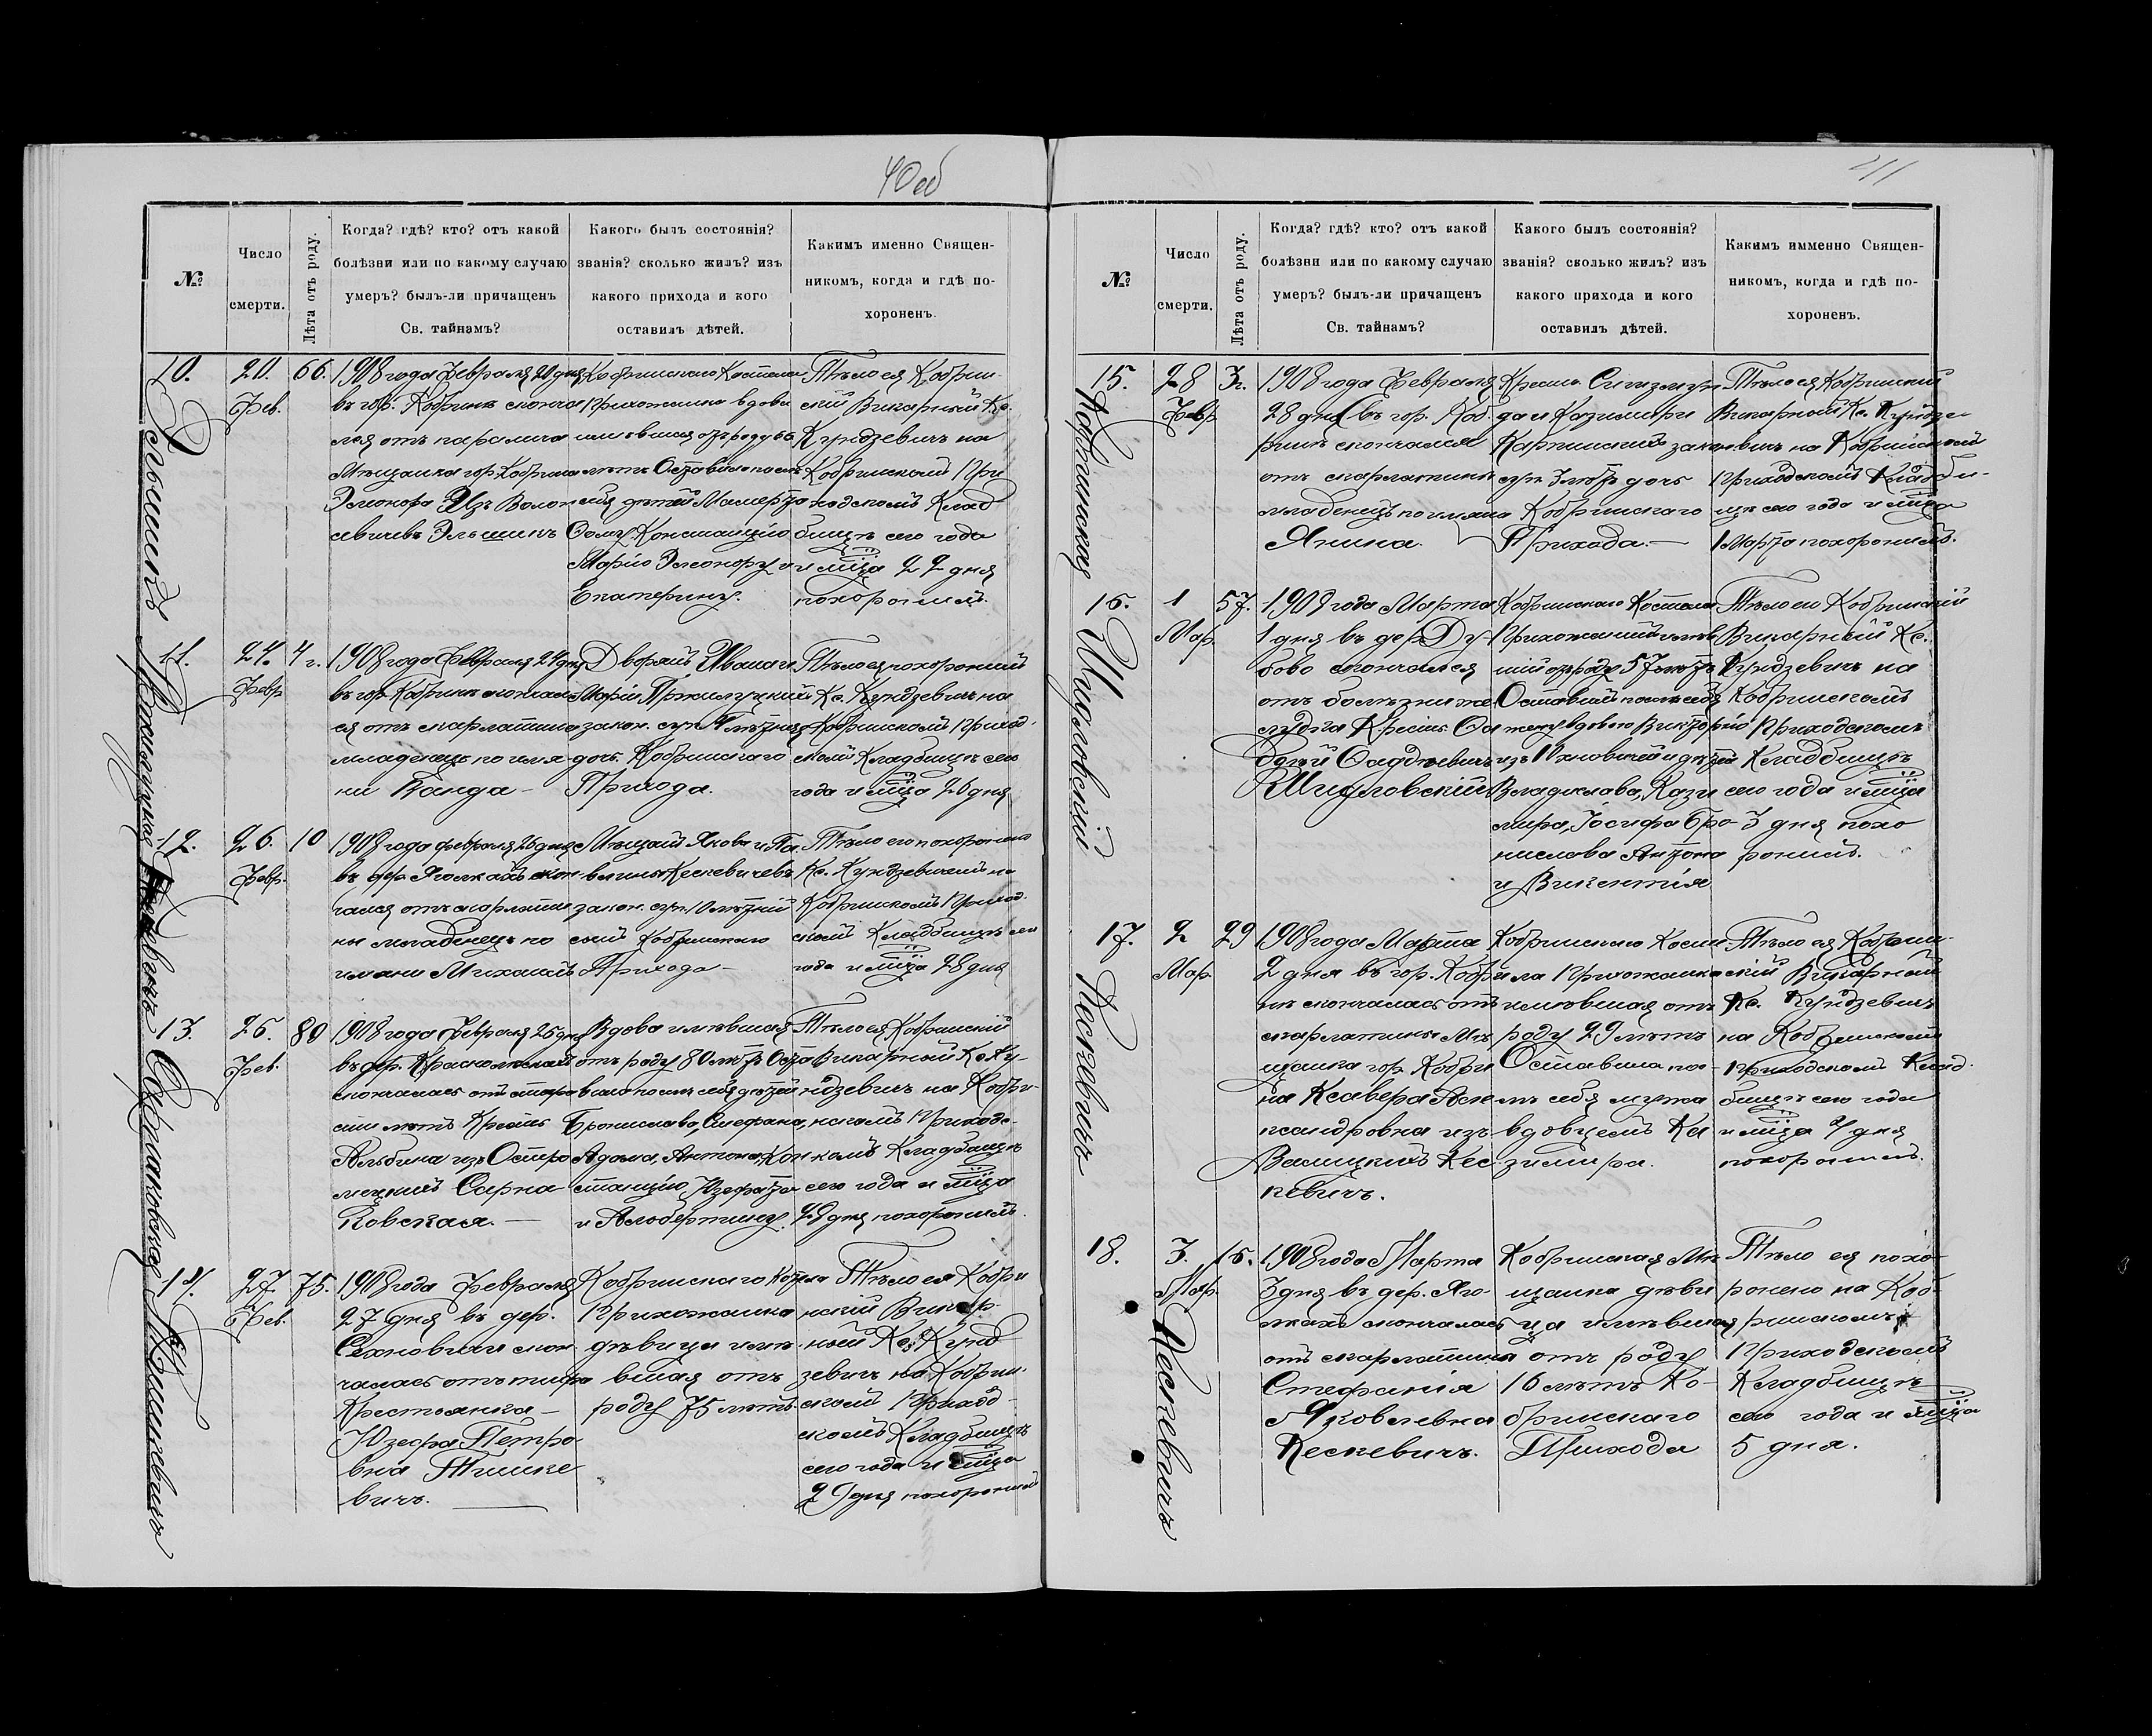 40 об
№
Число
смерти.
Лѣта отъ роду.
Когда? гдѣ? кто? отъ какой
болѣзни или по какому случаю
умеръ? былъ-ли причащенъ
Св. тайнамъ?
Какого былъ состоянія?
званія? сколько жилъ? изъ
какого прихода и кого
оставилъ дѣтей.
Какимъ именно Священ-
никомъ, когда и гдѣ по-
хороненъ.
10.
20.
Фев.
66.
1908 года Февраля 20 дня
въ гор. Кобринѣ сконча
лся отъ паралича
Мѣщанка гор. Кобрина
Элеонора Изъ Волон
севичевъ Эльшинъ
Кобринскаго Костела
Прихожанка вдова
имѣвшая отъ роду 66
лѣтъ Оставила послѣ
себя дѣтей
Констанцію
Марію Элеонору и
Екатерину.
Тѣло ея Кобрин-
скій Викарный Кс.
Кундзевичъ на
Кобринскомъ При
ходскомъ Клад
бищѣ сего года
и мѣсяца 22 дня
похоронилъ.
11.
24.
Февр.
4 г.
1908 года Февраля 24 дня
въ гор. Кобринѣ скончал
ся отъ скарлатины
младенецъ по име
ни Ванда
Дворянъ Ивана и
Маріи
закон. суп. 4 лѣтняя
дочь. Кобринскаго
Прихода.
Тѣло ея похоронилъ
Кс. Кундзевичъ на
Кобринскомъ Приход-
скомъ Кладбищѣ сего
года и мѣсяца 26 дня
12.
26.
Февр.
10
1908 года февраля 26 дня
въ дер. Яголкахъ скон
чался отъ скарлати
ны младенецъ по
имени Михаилъ
Мѣщанъ Якова и Па
влины Кескевичевъ
закон. суп. 10 лѣтній
сынъ Кобринскаго
Прихода
Тѣло его похоронено
Кс. Кундзевичемъ на
Кобринскомъ Приход-
скомъ Кладбищѣ сего
года и мѣсяца 28 дня
13.
26.
Фев.
80
1908 года Февраля 26 дня
въ дер.
скончалась отъ старо
сти лѣтъ Крестьян.
Альбина изъ Остро
мецкихъ Сарна
ковская.
Вдова имѣвшая
отъ роду 80 лѣтъ Оста
вила послѣ себя дѣтей
Бронислава, Стефана,
Адама, Антона, Кон
станцію Юзефата
и Альбертину.
Тѣло ея Кобринскій
Викарный Кс. Ку-
ндзевичъ на Кобри-
нскомъ Приходс-
комъ Кладбищѣ
сего года и мѣсяца
29 дня похоронилъ.
14.
27
Фев.
75.
1908 года Февраля
27 дня въ дер.
Сехновичи скон-
чалась отъ тифа
Крестьянка
Юзефа Петро-
вна Тишке
вичъ.
Кобринскаго Кост-ла
Прихожанка
дѣвица имѣ-
вшая отъ
роду 75 лѣтъ
Тѣло ея Кобри
нскій Викар-
ный Кс. Кунд
зевичъ на Кобрин-
скомъ Приход-
скомъ Кладбищѣ
сего года и мѣсяца
29 дня похоронилъ
Эльшинъ
Сарнаковская
Тишкевичъ
41
№
Число
смерти.
Лѣта отъ роду.
Когда? гдѣ? кто? отъ какой
болѣзни или по какому случаю
умеръ? былъ-ли причащенъ
Св. тайнамъ?
Какого былъ состоянія?
званія? сколько жилъ? изъ
какого прихода и кого
оставилъ дѣтей.
Какимъ имменно Священ-
никомъ, когда и гдѣ по-
хороненъ.
15.
28
Февр
3 г.
1908 года Февраля
28 дня въ гор. Коб-
ринѣ скончался
отъ скарлатины
младенецъ по имени
Янина.
Крестьян. Сигизмун
да и Казимиры
Карпинскихъ закон
суп. 3 лѣтъ дочь
Кобринскаго
Прихода.
Тѣло ея Кобринскій
Викарный Кс. Кундзе-
вичъ на Кобринскомъ
Приходскомъ Кладби-
щѣ сего года и мѣсяца
1 Марта похоронилъ.
16.
1
Мар.
57.
1908 года Марта
1 дня въ дер. Ду-
бово скончался
отъ болѣзни же
лудка Крестьян.
Фаддеевичъ
Шидловскій
Кобринскаго Костела
Прихожанинъ имѣв
шій отъ роду 57 лѣтъ
Оставилъ послѣ себя
жену вдовою Викторію
изъ Юхновичей и дѣтей
Владислава, Кази
мира, Іосифа Бро-
нислава Антона
и Викентія
Тѣло его Кобринскій
Викарный Кс.
Кундзевичъ на
Кобринскомъ
Приходскомъ
Кладбищѣ
сего года и мѣсяца
3 дня похо
ронилъ.
17.
2
Мар.
29
1908 года Марта
2 дня въ гор. Кобри
нѣ скончалась отъ
скарлатины Мѣ
щанка гор. Кобри
на Ксавера Алек
сандровна изъ
Валицкихъ Кес-
кевичъ.
Кобринскаго Косте
ла Прихожанка
имѣвшая отъ
роду 29 лѣтъ
Оставила пос-
лѣ себя мужа
вдовцемъ Ка
зимира.
Тѣло ея Кобрин-
скій Викарный
Кс. Кундзевичъ
на Кобринскомъ
Приходскомъ Клад-
бищѣ сего года
и мѣсяца 4 дня
похоронилъ.
18.
3.
Мар.
16.
1908 года Марта
3 дня въ дер. Яго-
лкахъ скончалась
отъ скарлатины
Стефанія
Яковлевна
Кескевичъ.
Кобринская Мѣ
щанка дѣви
ца имѣвшая
отъ роду
16 лѣтъ Ко-
бринскаго
Прихода
Тѣло ея похо-
ронено на Коб-
ринскомъ
Приходскомъ
Кладбищѣ
сего года и мѣсяца
5 дня.
Карпинская
Шидловскій
Кескевичъ
Кескевичъ